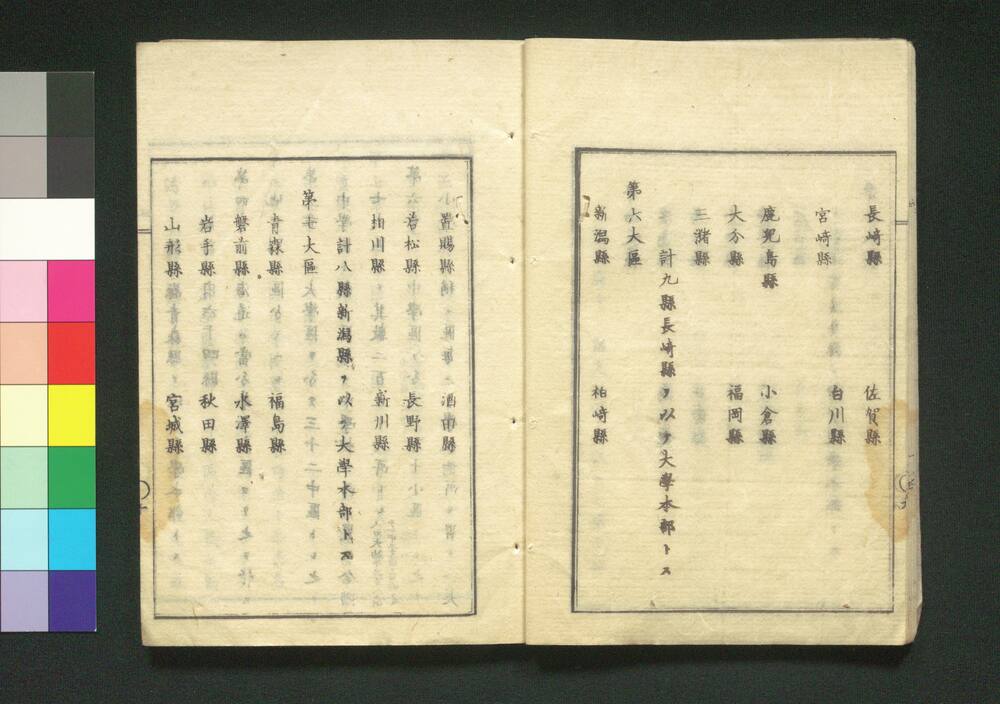 長崎縣 佐賀縣
宮崎縣 白川縣
鹿兒島縣 小倉縣
大分縣 福岡縣
三潴縣
計九縣長崎縣ヲ以テ大學本部トス
第六大區
新潟縣 柏崎縣
置賜縣 酒田縣
若松縣 長野縣
相川縣 新川縣
計八縣新潟縣ヲ以テ大學本部トス
第七大區
青森縣 福島縣
磐前縣 水澤縣
岩手縣 秋田縣
山形縣 宮城縣